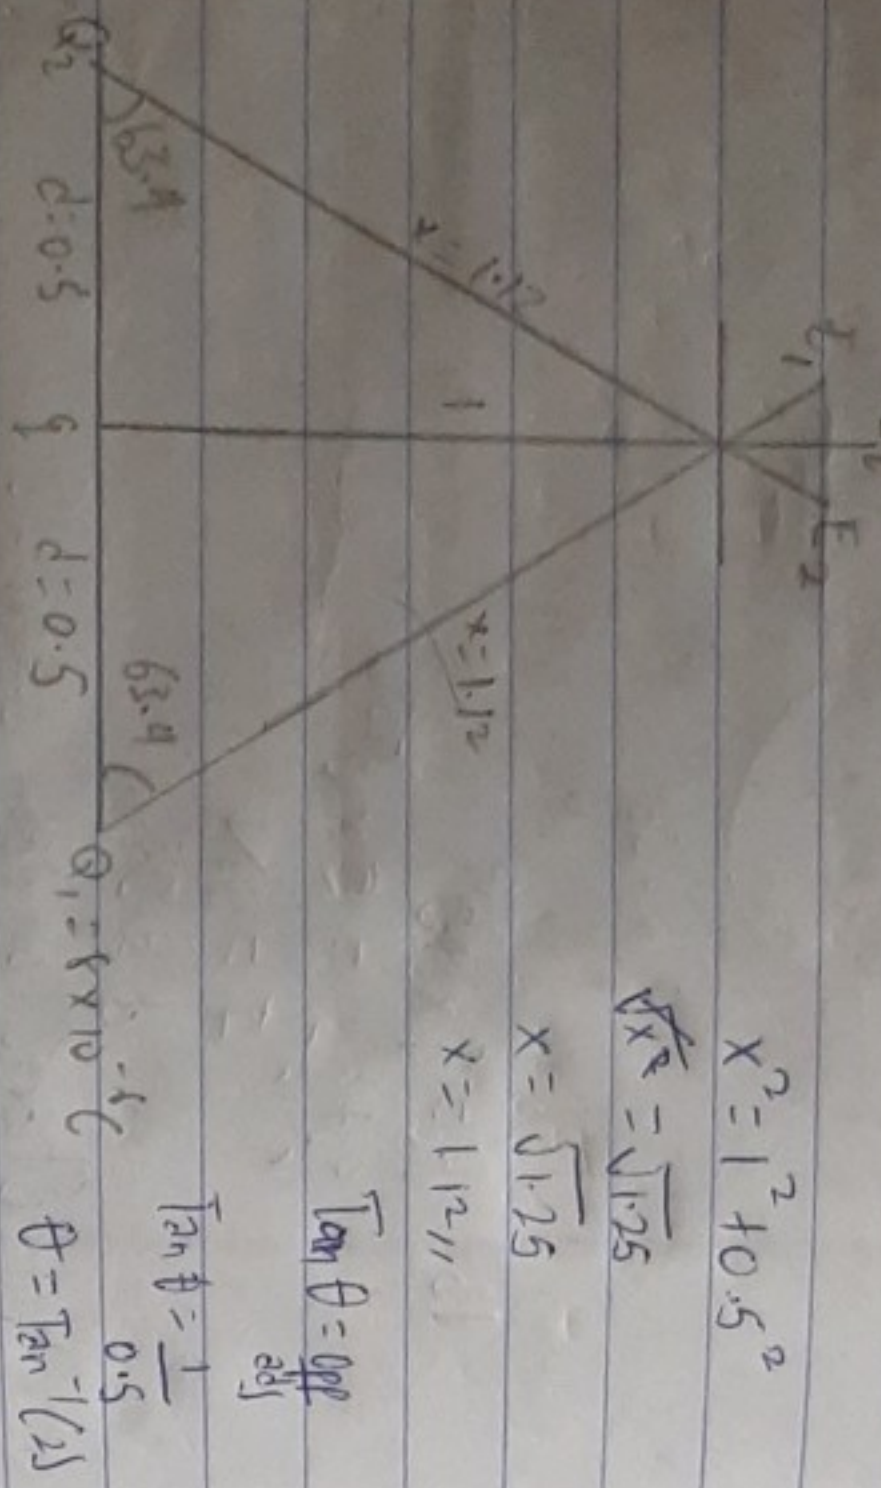 E₁
E₂
x = 1.12
1
x = 1.12
63.4
63.4
Q₂
d=0.5
q
d=0.5
Q₁ = 8×10⁻⁶C
x² = 1² + 0.5²
√x² = √1.25
x = √1.25
x = 1.12,,
Tan θ = opp/adj
Tan θ = 1/0.5
θ = Tan⁻¹(2)